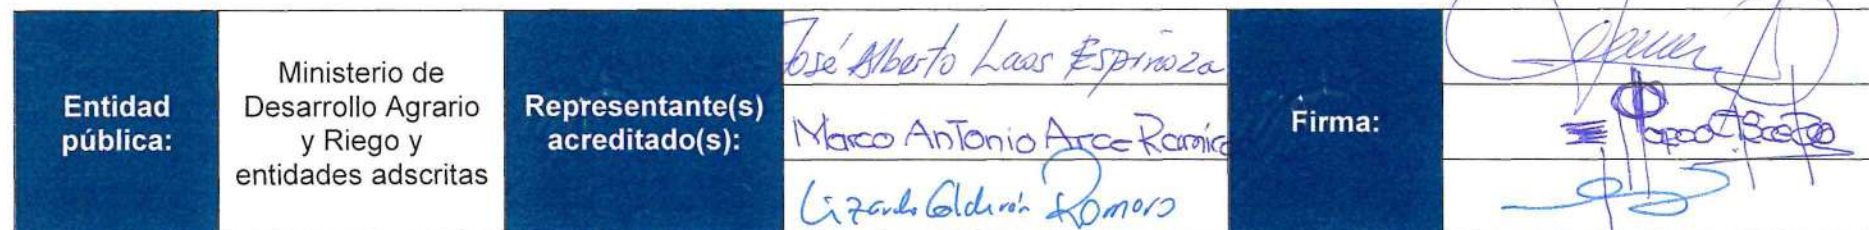 Entidad
pública:
Ministerio de
Desarrollo Agrario
y Riego y
entidades adscritas
Representante(s)
acreditado(s):
José Alberto Laos Espinoza
Marco Antonio Arce Ramíre
Lizardo Calderón Romero
Firma: